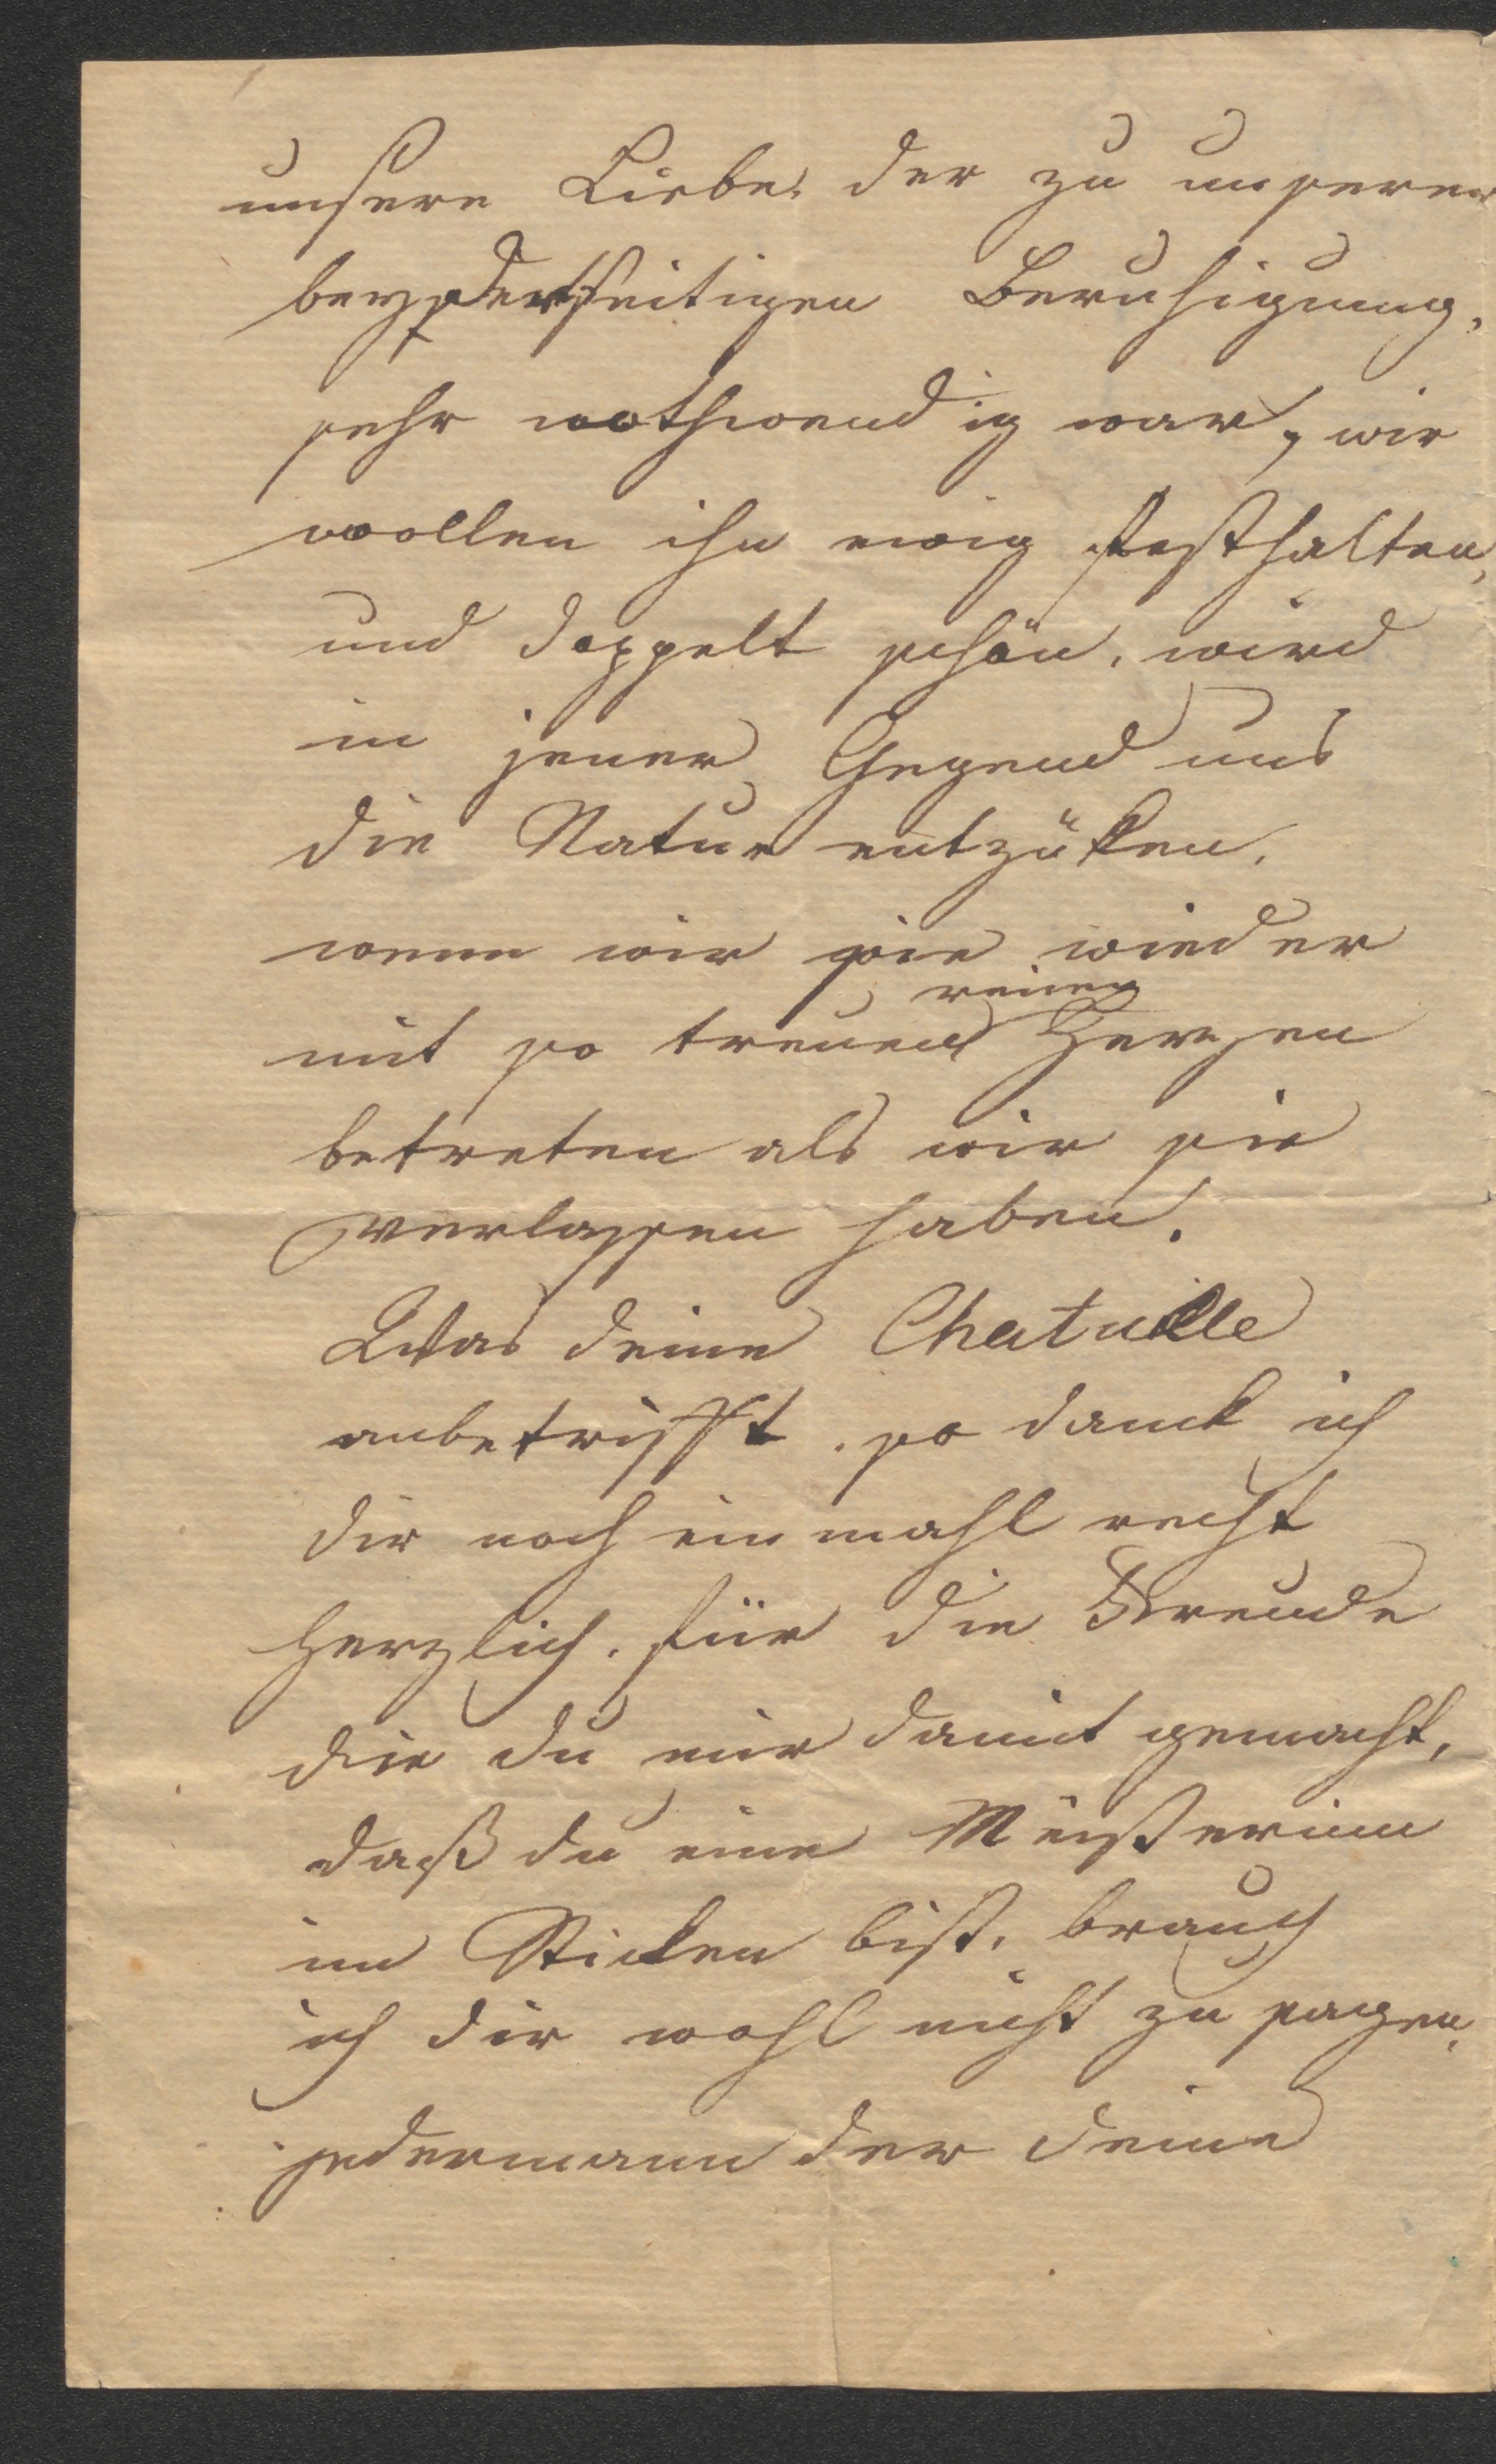 unsere Liebe, der zu unserer
beyderseitigen Beruhigung,
sehr nothwendig war, wir
wollen ihn ewig festhalten,
und doppelt schön, wird
in jener Gegend uns
die Natur entzüken,
wenn wir sie wieder
reinen
mit so treuen Herzen
betreten als wir sie
verlassen haben.
Was deine Chatulle
anbetrifft, so dank ich
dir noch einmahl recht
herzlich, für die Freude
die du mir damit gemacht,
daß du eine Meisterinn
im Sticken bist, brauch
ich dir wohl nicht zu sagen,
jedermann der deine